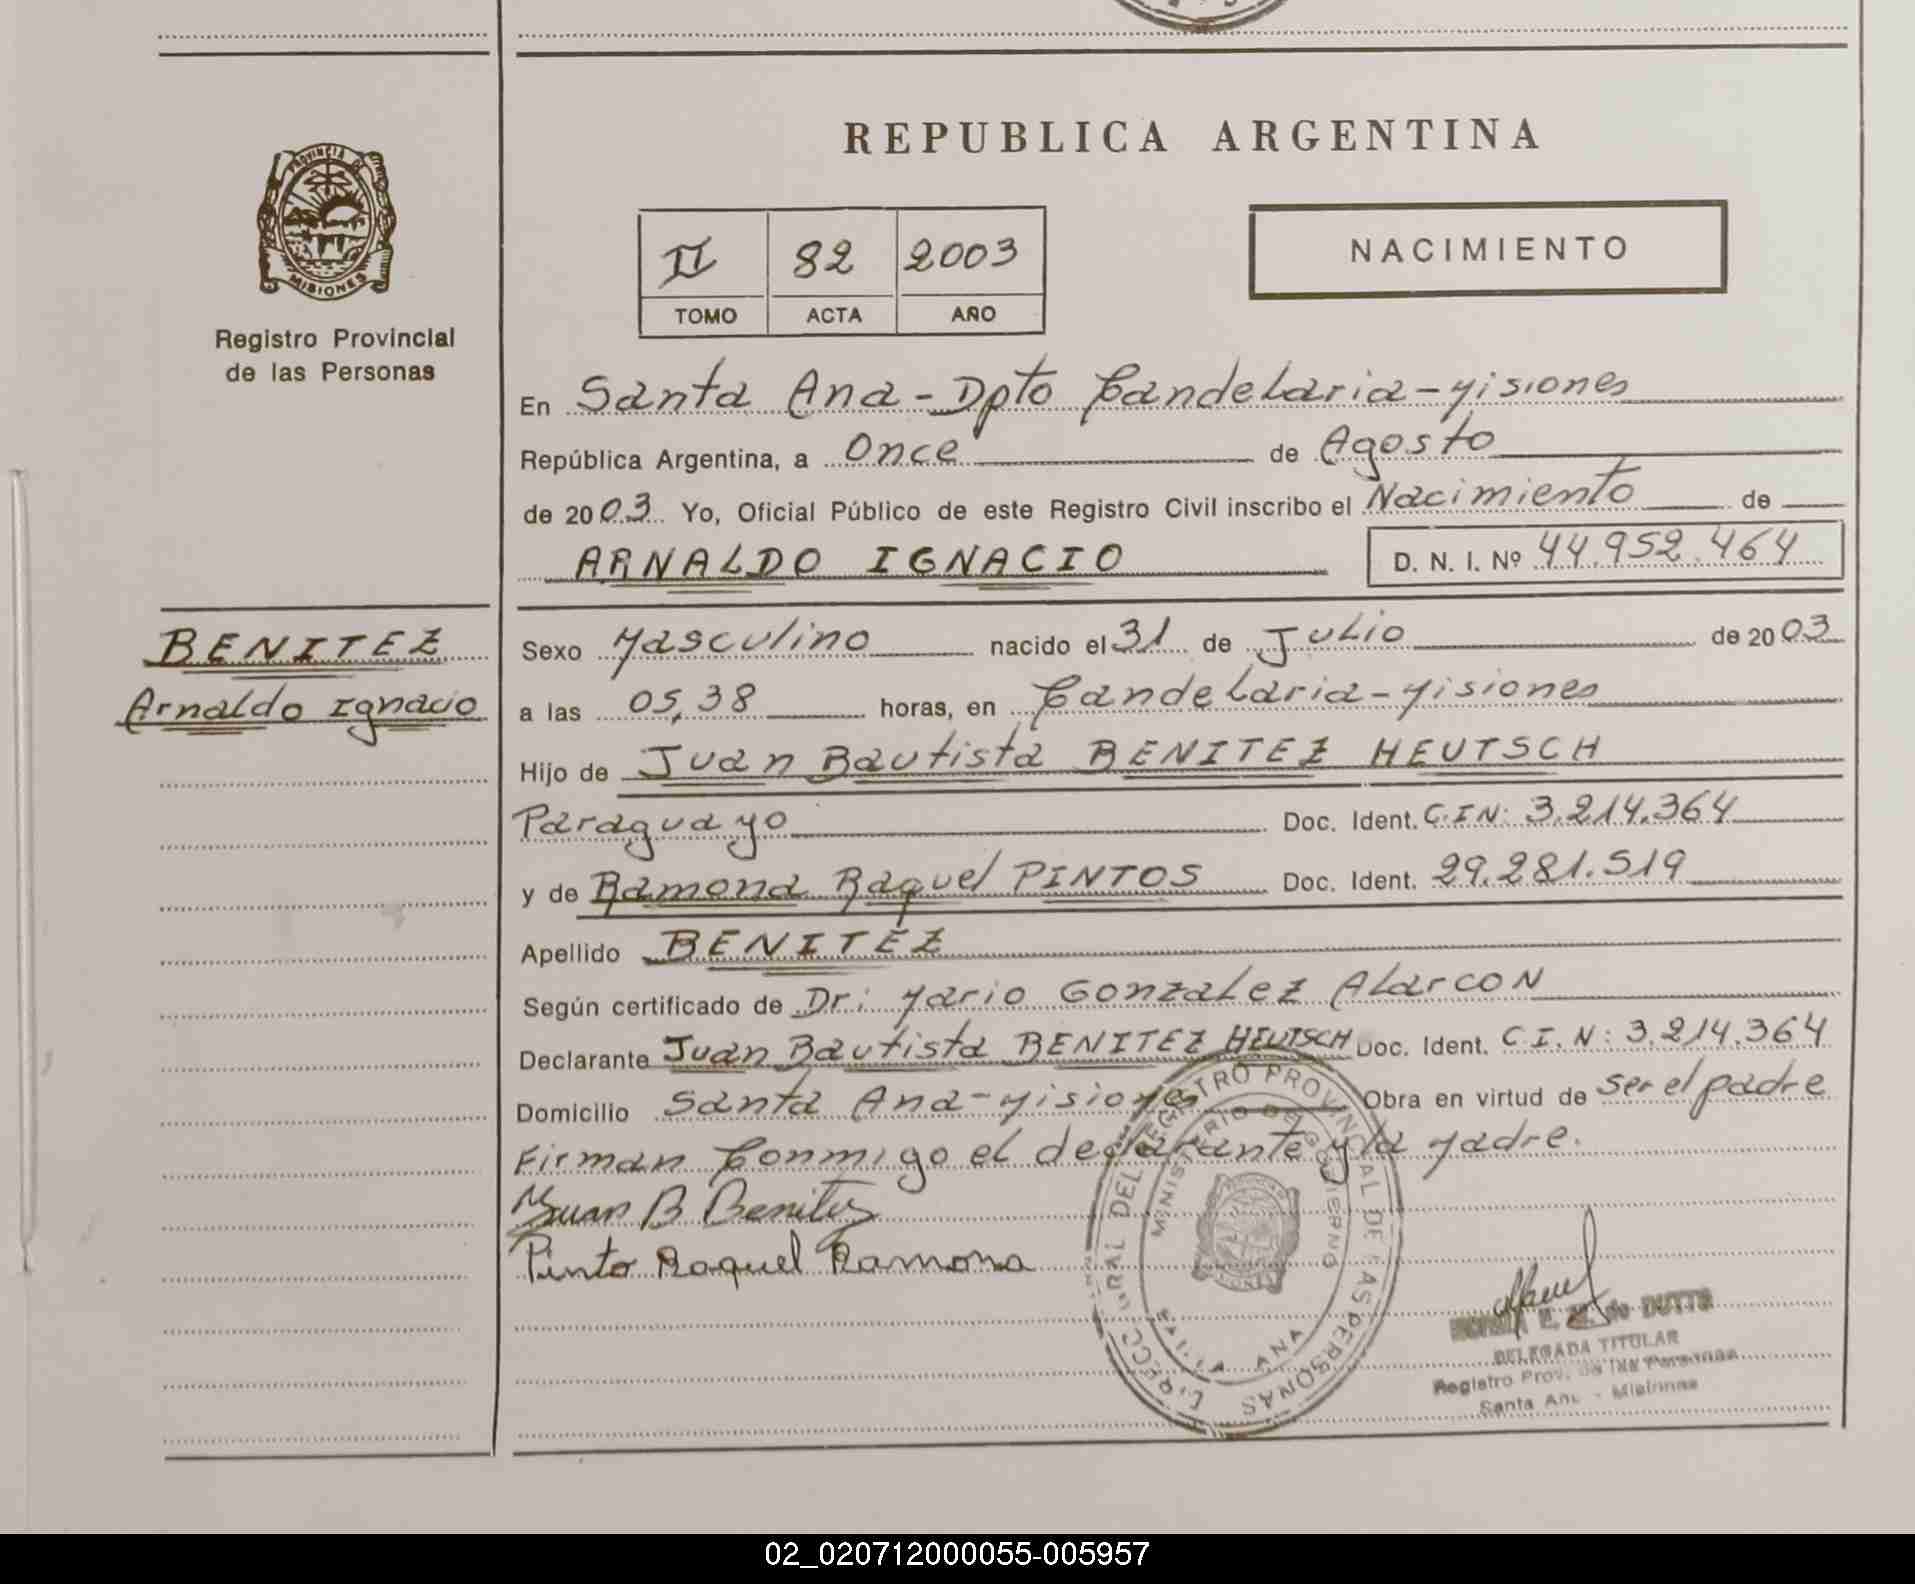 REPUBLICA ARGENTINA
PROVINCIA DE
MISIONES
Registro Provincial
de las Personas
II 82 2003
TOMO ACTA AÑO
NACIMIENTO
En Santa Ana - Dpto Candelaria - Misiones
República Argentina, a Once de Agosto
de 2003 Yo, Oficial Público de este Registro Civil inscribo el Nacimiento de
ARNALDO IGNACIO D. N. I. Nº 44.952.464
BENITEZ
Arnaldo Ignacio
Sexo Masculino nacido el 31 de Julio de 2003
a las 05,38 horas, en Candelaria - Misiones
Hijo de Juan Bautista BENITEZ HEUTSCH
Paraguayo Doc. Ident. C.I.N: 3.214.364
y de Ramona Raquel PINTOS Doc. Ident. 29.281.519
Apellido BENITEZ
Según certificado de Dr: Mario Gonzalez Alarcon
Declarante Juan Bautista BENITEZ HEUTSCH Doc. Ident. C.I.N: 3.214.364
Domicilio Santa Ana - Misiones Obra en virtud de ser el padre
Firman Conmigo el declarante y la Madre.
Juan B Benitez
Pinto Raquel Ramona
REGISTRO PROVINCIAL DE LAS PERSONAS
MINISTERIO DE GOBIERNO
ANA
de DUTTO
DELEGADA TITULAR
Registro Prov. de las Personas
Santa Ana - Misiones
02_020712000055-005957